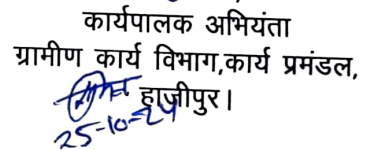 कार्यपालक अभियंता
ग्रामीण कार्य विभाग,कार्य प्रमंडल,
हाजीपुर।
25-10-24